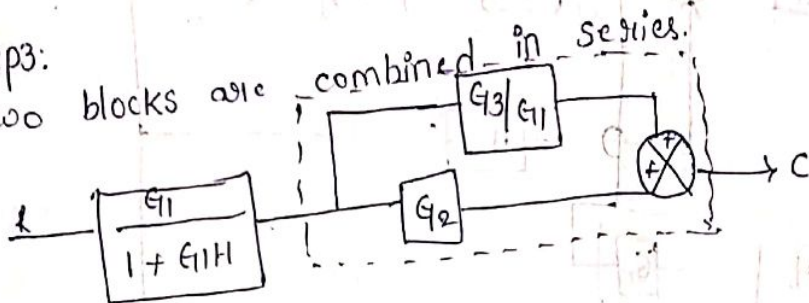 p3:
blocks are combined in series.
G3/G1
R
G1
1 + G1H
G2
+
+
C